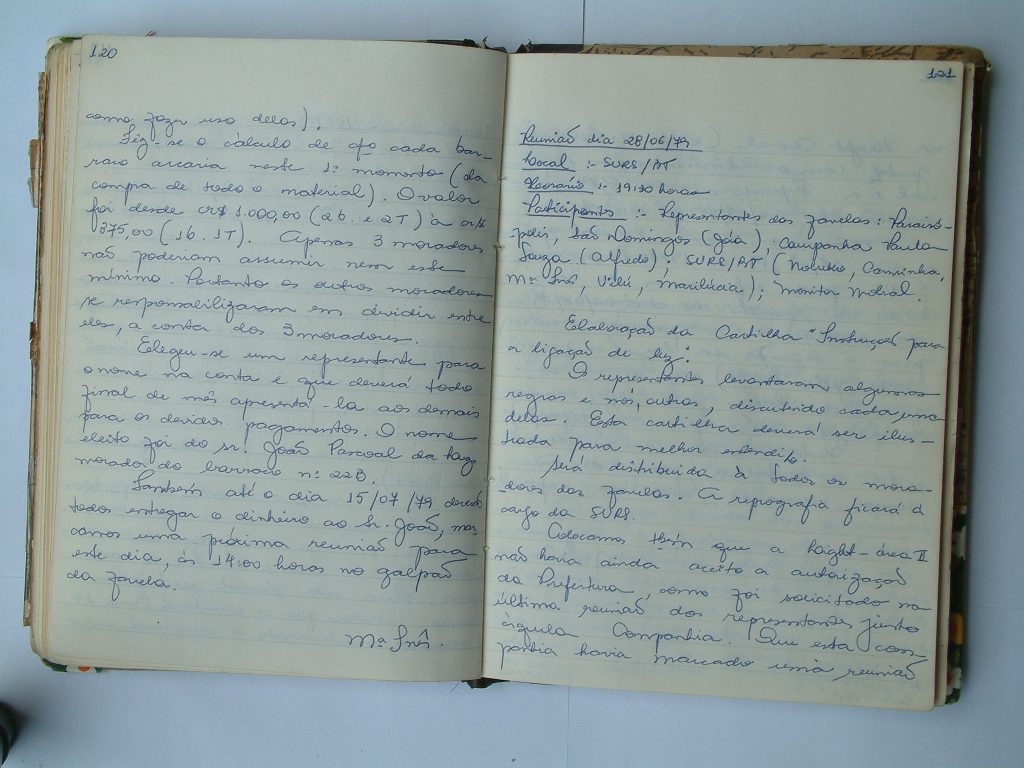 120
como fazer uso delas).
Fez-se o cálculo de qto cada bar-
raco arcaria neste 1º momento (da
compra de todo o material). O valor
foi desde cr$ 1.000,00 (2b. e 2T) à cr$
375,00 (1b. 1T). Apenas 3 moradores
não poderiam assumir nem este
mínimo. Portanto os outros moradores
se responsabilizaram em dividir entre
eles, a conta dos 3 moradores.
Elegeu-se um representante para
o nome na conta e que deverá todo
final de mês apresentá-la aos demais
para os devidos pagamentos. O nome
eleito foi do sr. João Pascoal da
morador do barraco nº 22B.
Também até o dia 15/07/79 deverão
todos entregar o dinheiro ao Sr. João, mar
camos uma próxima reunião para
este dia, às 14:00 horas no galpão
da favela.
Mª Inês.
121
Reunião dia 28/06/79
Local :- SURS/BT
Horário :- 19:30 horas
Participantes :- Representantes das favelas: Paraisó-
polis, São Domingos (Jóia), Campanha Paula
Souza (Alfredo); SURS/BT (
Mª Inês, Marilúcia); Monitor Mobral.
Elaboração da Cartilha "Instrução para
a ligação de luz".
O representantes levantaram algumas
regras e nós, outras, discutindo cada uma
delas. Esta cartilha deverá ser ilus-
trada para melhor entendê-lo.
Será distribuida à todos os mora-
dores das favelas. A reprografia ficará à
cargo da SURS.
Colocamos tbém que a haight-área II
não havia ainda aceito a autorização
da Prefeitura, como foi solicitado na
última reunião dos representantes junto
àquela Companhia. Que esta com
panhia havia marcado uma reunião